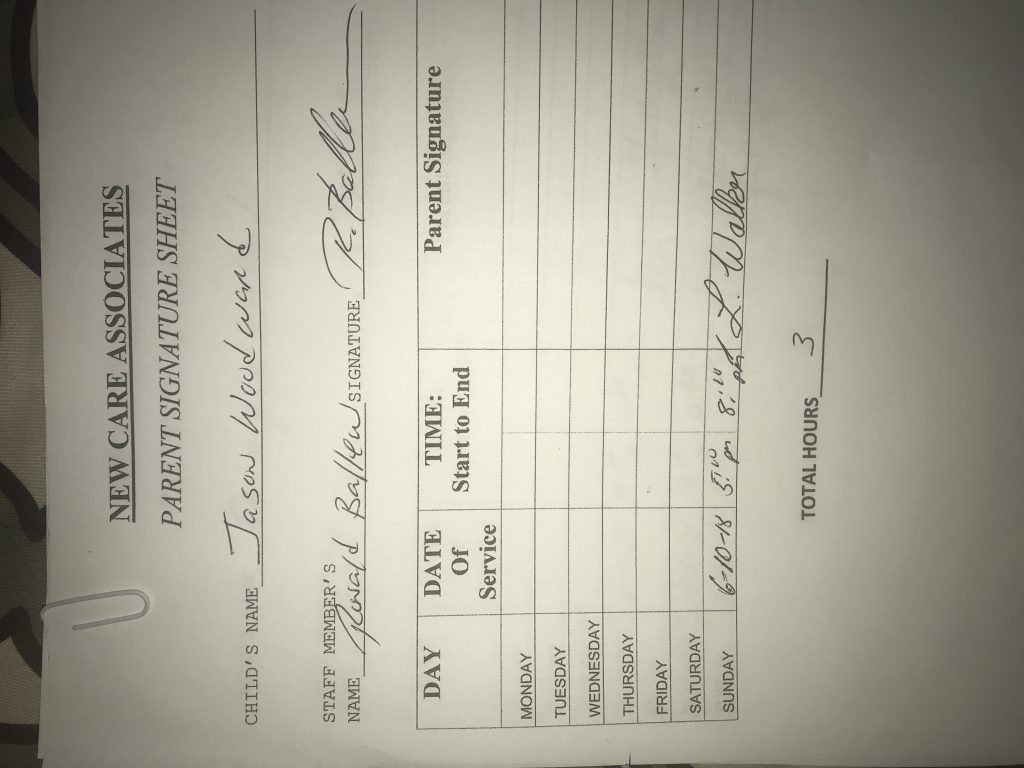 NEW CARE ASSOCIATES
PARENT SIGNATURE SHEET
CHILD'S NAME Jason Woodward
STAFF MEMBER'S
NAME Ballew SIGNATURE R. Balle
DAY DATE Of Service TIME: Start to End Parent Signature
MONDAY
TUESDAY
WEDNESDAY
THURSDAY
FRIDAY
SATURDAY
SUNDAY 6-10-18 5:00 pm 8:00 pm L. Walker
TOTAL HOURS 3